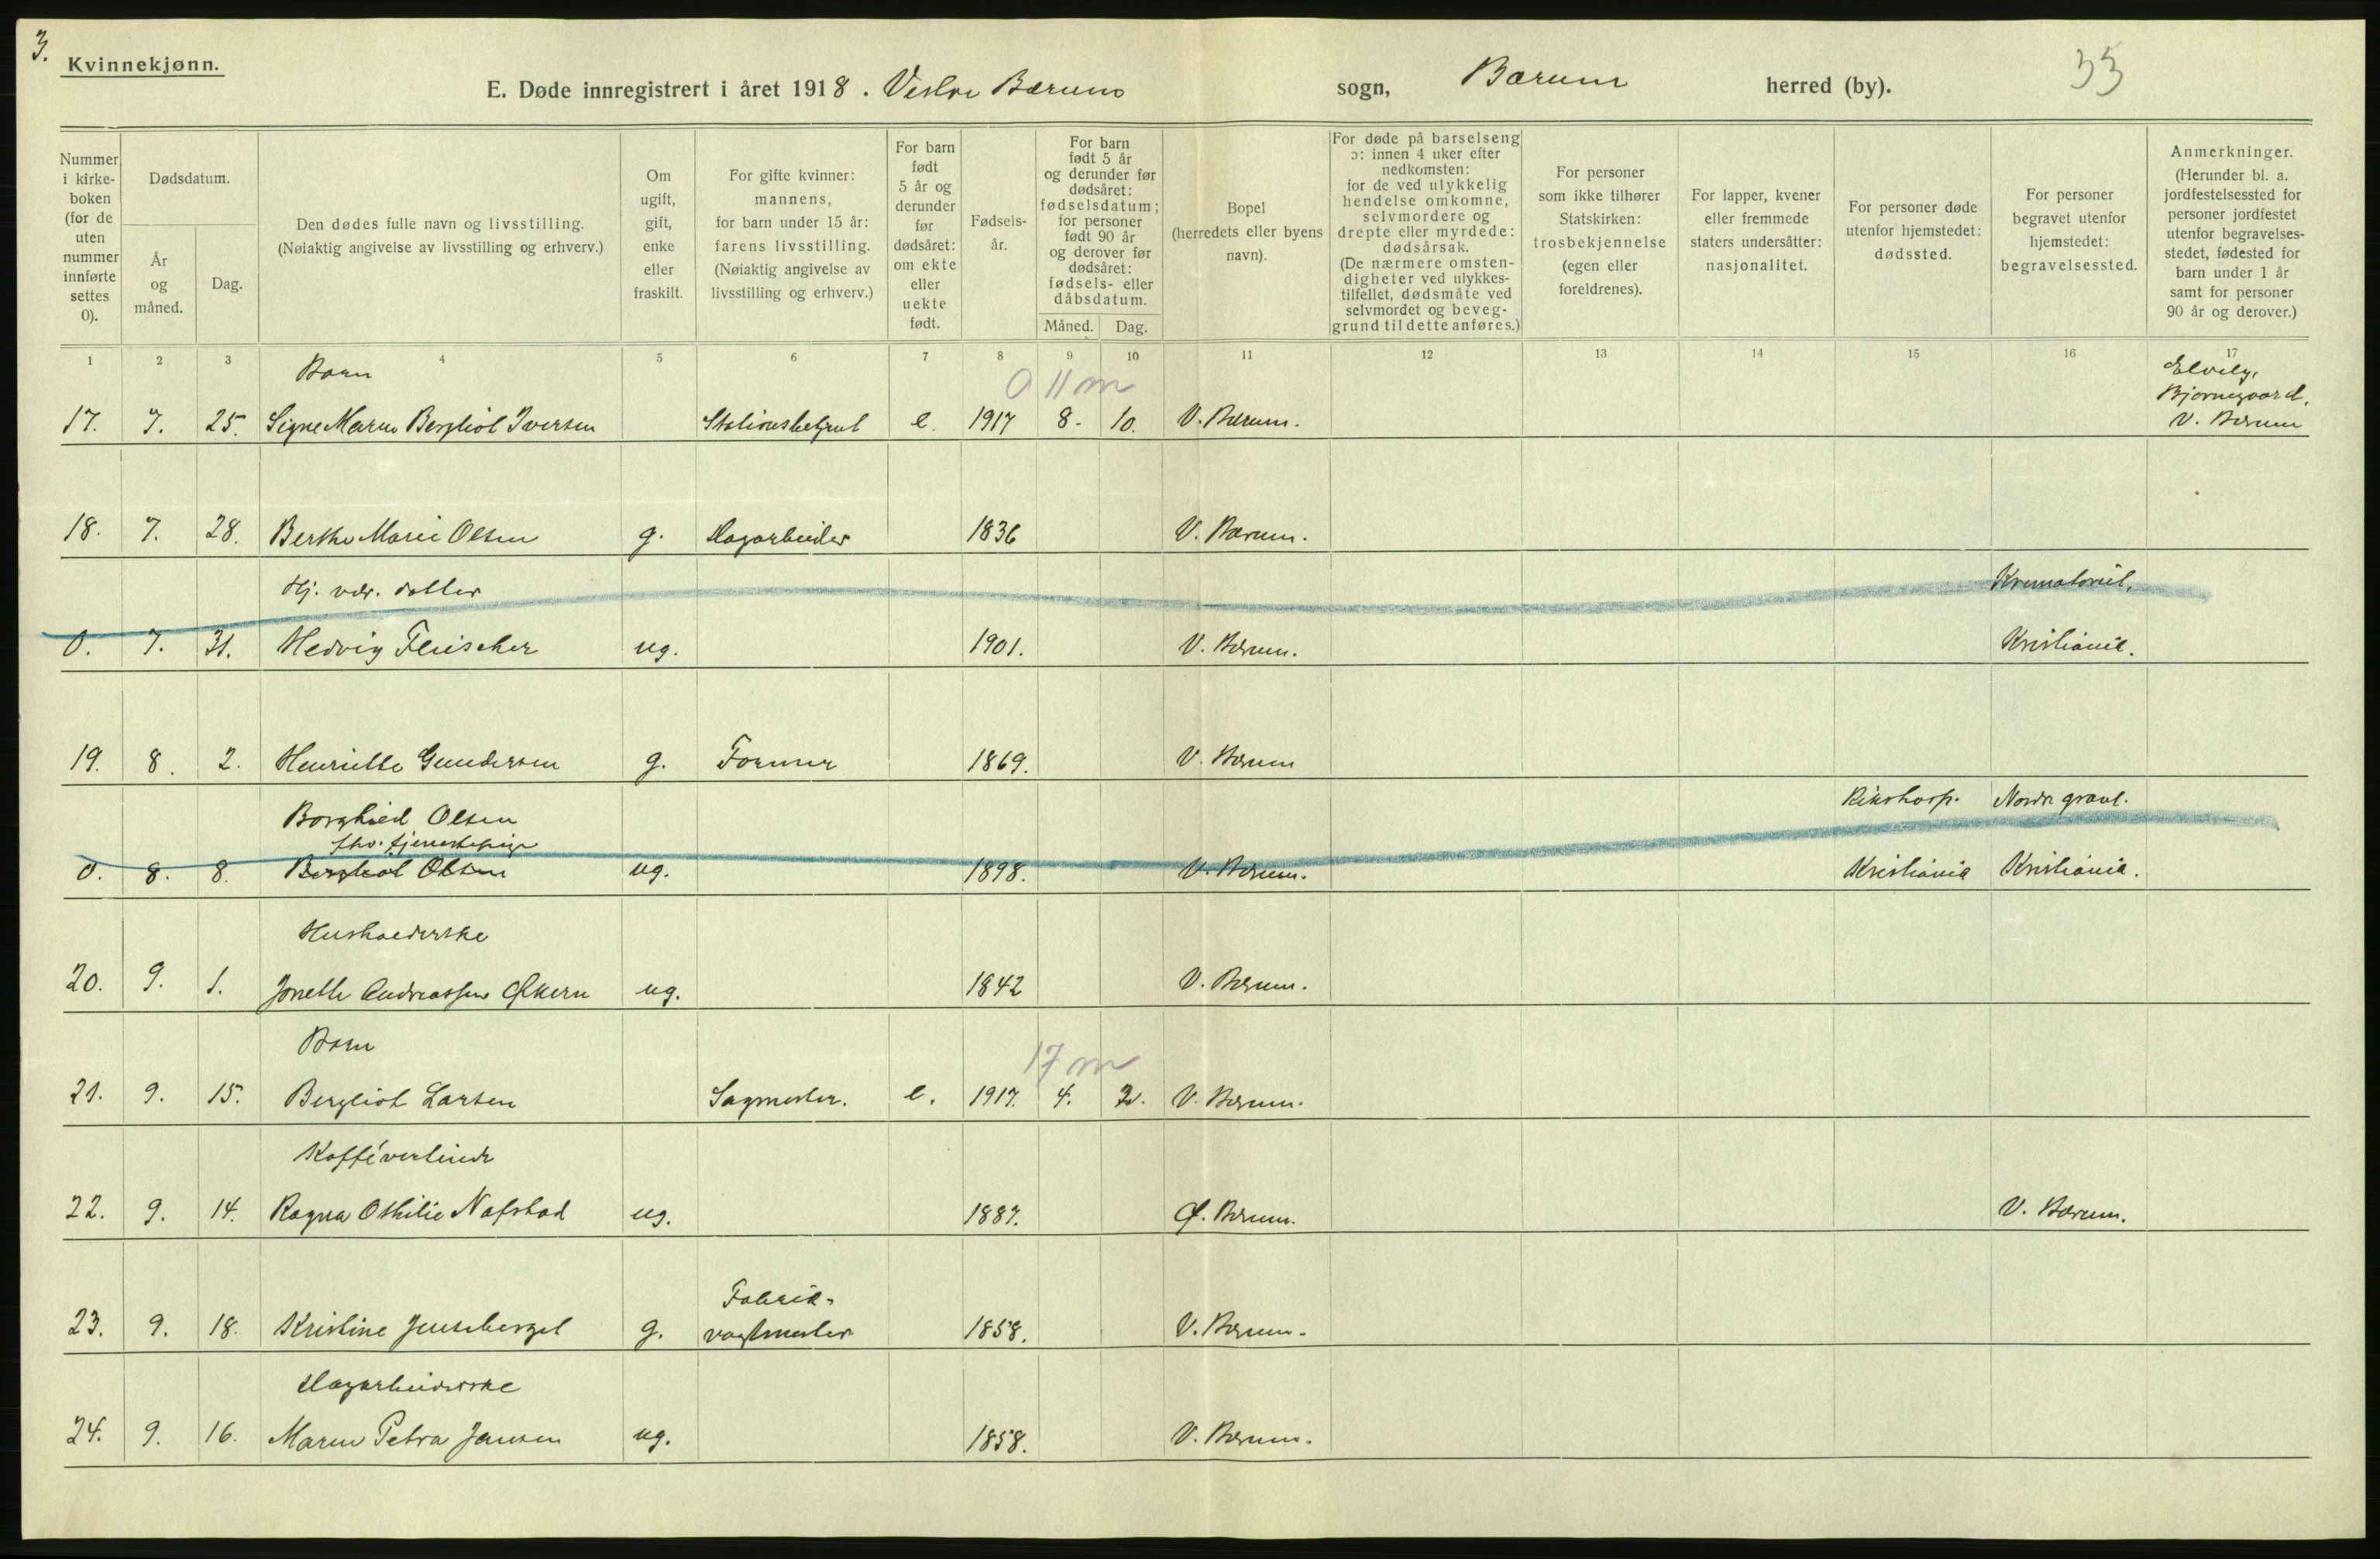 3.
Kvinnekjønn.
E. Døde innregistrert i året 1918. Vestre Bærums sogn, Bærum herred (by).
33
Nummer i kirkeboken (for de uten nummer innførte settes 0).
Dødsdatum.
År og måned.
Dag.
Den dødes fulle navn og livsstilling.
(Nøiaktig angivelse av livsstilling og erhverv.)
Om ugift, gift, enke eller fraskilt.
For gifte kvinner: mannens, for barn under 15 år: farens livsstilling. (Nøiaktig angivelse av livsstilling og erhverv.)
For barn født 5 år og derunder før dødsåret: om ekte eller uekte født.
Fødselsår.
For barn født 5 år og derunder før dødsåret: fødselsdatum; for personer født 90 år og derover før dødsåret: fødsels- eller dåbsdatum.
Måned. Dag.
Bopel (herredets eller byens navn).
For døde på barselseng ɔ: innen 4 uker efter nedkomsten: for de ved ulykkelig hendelse omkomne, selvmordere og drepte eller myrdede: dødsårsak. (De nærmere omstendigheter ved ulykkestilfellet, dødsmåte ved selvmordet og beveggrund til dette anføres.)
For personer som ikke tilhører Statskirken: trosbekjennelse (egen eller foreldrenes).
For lapper, kvener eller fremmede staters undersåtter: nasjonalitet.
For personer døde utenfor hjemstedet: dødssted.
For personer begravet utenfor hjemstedet: begravelsessted.
Anmerkninger. (Herunder bl. a. jordfestelsessted for personer jordfestet utenfor begravelsesstedet, fødested for barn under 1 år samt for personer 90 år og derover.)
1 2 3 4 5 6 7 8 9 10 11 12 13 14 15 16 17
Barn
0 11 m
Bjørnegaard,
17. 7. 25. Signe Marie Bergliot Iversen e. 1917 8. 10. V. Bærum. V. Bærum
18. 7. 28. Berthe Marie Olsen g. Dagarbeider 1836 V. Bærum.
Hj. vær. datter Krematoriet,
0. 7. 31. Hedvig Fleischer ug. 1901. V. Bærum. Kristiania.
19. 8. 2. Henriette Gundersen g. Former 1869. V. Bærum
Borghild Olsen Rikshosp. Nordre gravl.
fhv. tjenestepige
0. 8. 8. Bergliot Olsen ug. 1898. V. Bærum. Kristiania Kristiania.
Husholderske
20. 9. 1. Jonette Andreassen Økern ug. 1842 V. Bærum.
Barn
17 m
21. 9. 15. Bergliot Larsen Sagmester. e. 1917. 4. 2. V. Bærum.
Kafféværtinde
22. 9. 14. Ragna Othilie Nafstad ug. 1887. Ø. Bærum. V. Bærum.
Fabrik-
23. 9. 18. Kristine Jensberget g. vagtmester 1858. V. Bærum.
Dagarbeiderske
24. 9. 16. Maren Petra Jansen ug. 1858. V. Bærum.